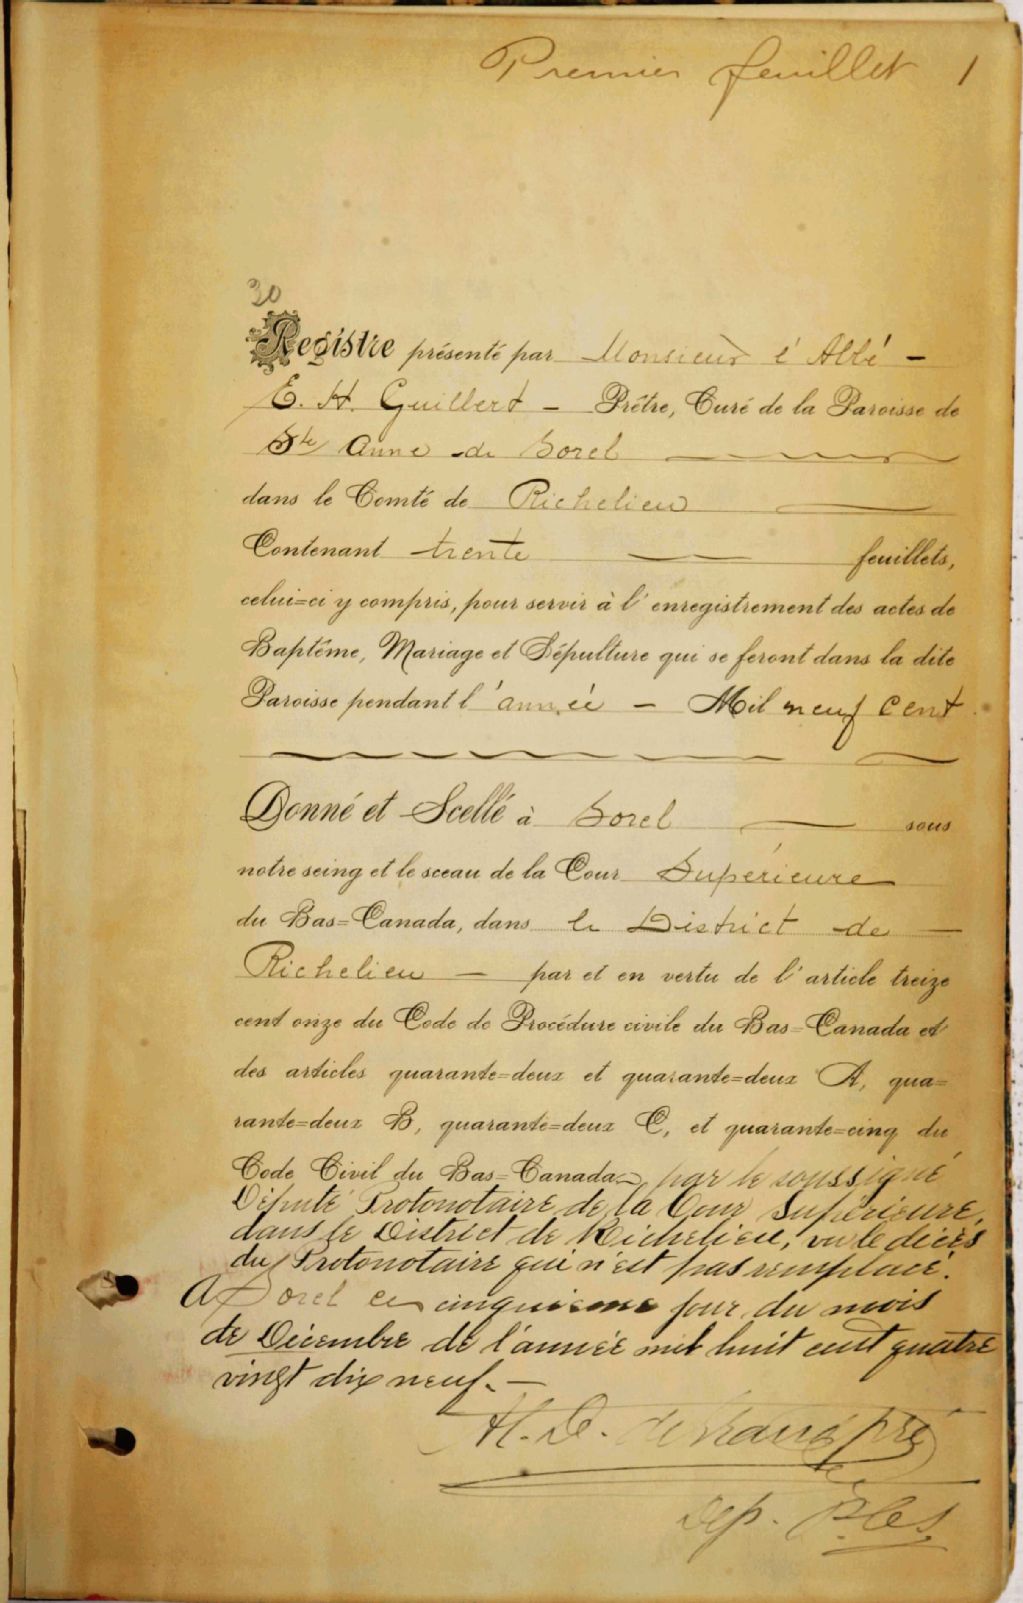 Premier feuillet 1
30
Registre présenté par Monsieur l'Abbé –
E. H. Guilbert – Prêtre, Curé de la Paroisse de
Ste Anne de Sorel
dans le Comté de Richelieu
Contenant trente feuillets,
celui=ci y compris, pour servir à l'enregistrement des actes de
Baptême, Mariage et Sépulture qui se feront dans la dite
Paroisse pendant l'année – Mil neuf cent
Donné et Scellé à Sorel sous
notre seing et le sceau de la Cour Supérieure
du Bas=Canada, dans le District de –
Richelieu – par et en vertu de l'article treize
cent onze du Code de Procédure civile du Bas=Canada et
des articles quarante=deux et quarante=deux A, qua=
rante=deux B, quarante=deux C, et quarante=cinq du
Code Civil du Bas=Canada par le soussigné
Député Protonotaire de la Cour Supérieure,
dans le District de Richelieu, vu le décès
du Protonotaire qui n'est pas remplacé.
A Sorel ce cinquième jour du mois
de Décembre de l'année mil huit cent quatre
vingt dix neuf. –
Dep.